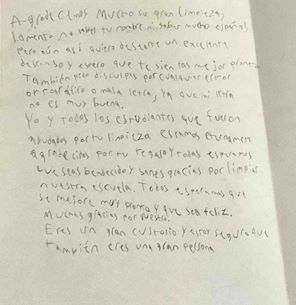 Agradecemos mucho su gran limpieza,
lamento no saber tu nombre ni saber mucho español,
pero aún así quiero desearte un excelente
descanso y espero que te sientas mejor pronto
También pido disculpas por cualquier error
ortográfico o mala letra, ya que mi letra
no es muy buena.
Yo y todos los estudiantes que fueron
ayudados por tu limpieza estamos eternamen
agradecidos por tu regalo y todos esperamos
que seas bendecido y sanes gracias por limpiar
nuestra escuela. Todos esperamos que
se mejore muy pronto y que sea feliz.
Muchas gracias por
Eres un gran custodio y estoy segura que
también eres una gran persona